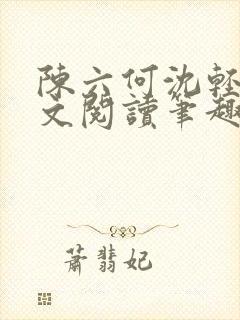 陳六何沈輕
文閱讀筆趣
蕭翡妃